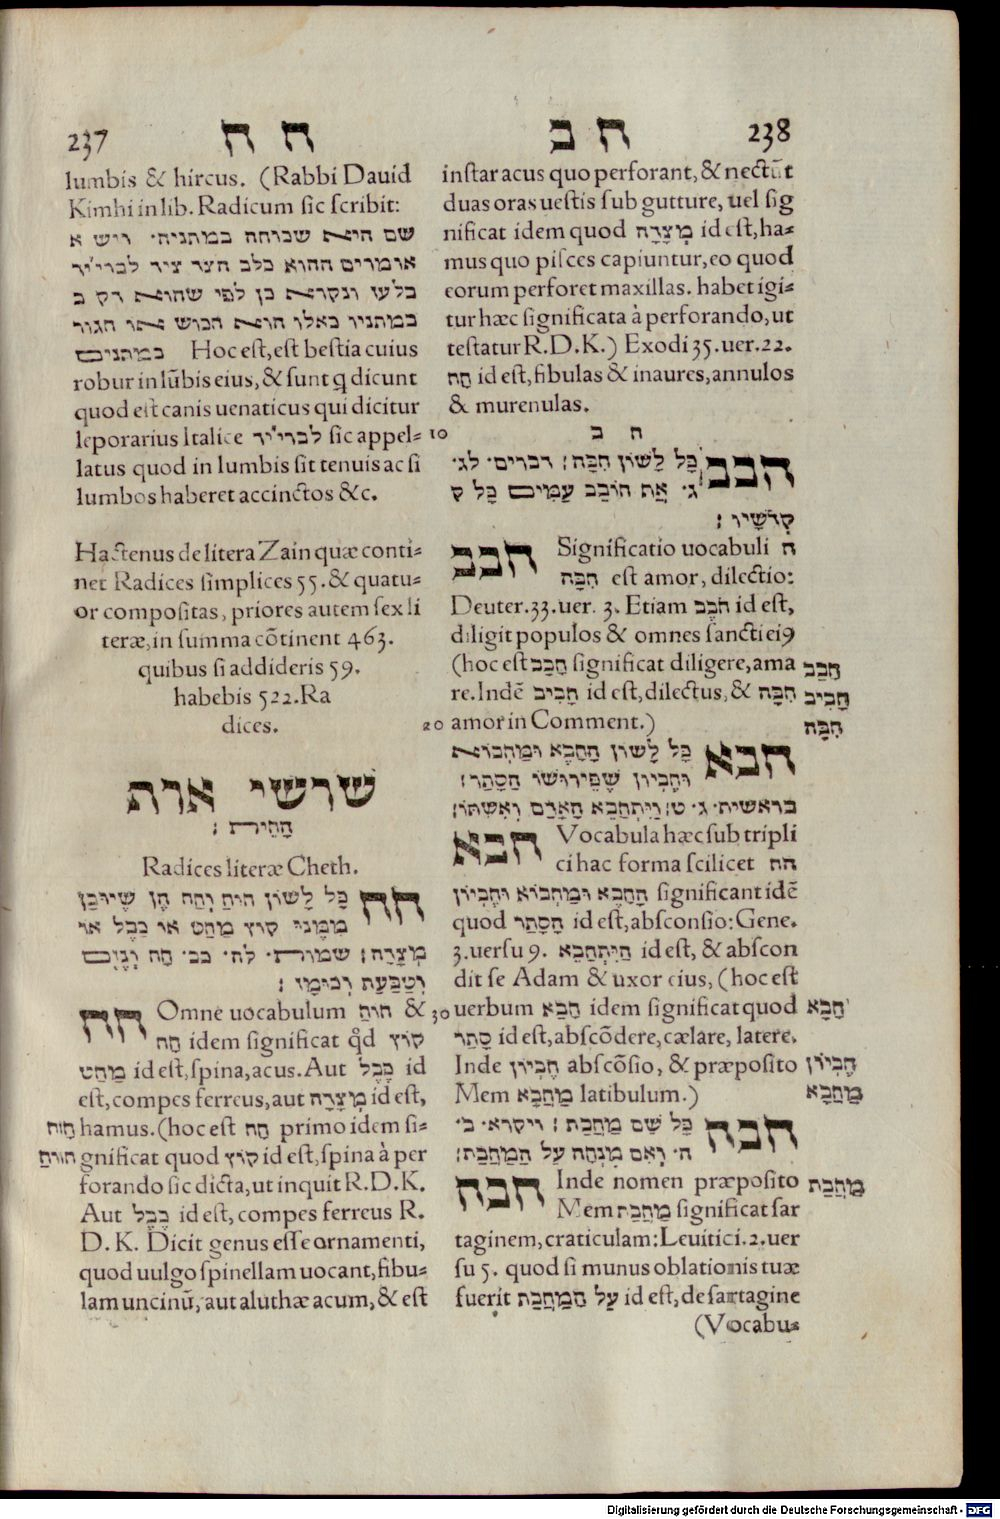 237
ח ח
lumbis & hircus. (Rabbi Dauid
Kimhi in lib. Radicum sic scribit:
שם היא שכוחה במתניה· ויש א
אומרים ההוא כלב הצר ציד לברי״יר
בלעז ונקרא כן לפי שהוא רק ב
במתניו כאלו הוא חבוש או חגור
במתנים Hoc est, est bestia cuius
robur in lũbis eius, & sunt q dicunt
quod est canis uenaticus qui dicitur
leporarius Italice לברי״יר sic appel=
latus quod in lumbis sit tenuis ac si
lumbos haberet accinctos &c.
Hactenus de litera Zain quæ conti=
net Radices simplices 55. & quatu=
or compositas, priores autem sex li
teræ, in summa cõtinent 463.
quibus si addideris 59.
habebis 522. Ra
dices.
שורשי אות
הַחֵית :
Radices literæ Cheth.
חח כָּל לָשׁוֹן חוֹחַ וְחַח הֶן שֶׁיּוּכַן
מִמֶּנּוּ קוֹץ מַחַט אוֹ כֶבֶל אוֹ
מְצָרָה: שמות· לה· כב· חָח וָנֶזֶם
וְטַבַּעַת וְכוּמָז :
חח Omne uocabulum חוח &
חָח idem significat qd̃ קוֹץ
מַחַט id est, spina, acus. Aut כֶּבֶל id
est, compes ferreus, aut מְצָרָה id est,
hamus. (hoc est חָח primo idem si= חָוֹח
gnificat quod קוֹץ id est, spina à per חוֹחַ
forando sic dicta, ut inquit R.D.K.
Aut כֶּבֶל id est, compes ferreus R.
D. K. Dicit genus esse ornamenti,
quod uulgo spinellam uocant, fibu=
lam uncinũ, aut aluthæ acum, & est
238
ח ב
instar acus quo perforant, & nectũt
duas oras uestis sub gutture, uel sig
nificat idem quod מְצָרָה id est, ha=
mus quo pisces capiuntur, eo quod
eorum perforet maxillas. habet igi=
tur hæc significata à perforando, ut
testatur R.D.K.) Exodi 35. uer. 22.
חָח id est, fibulas & inaures, annulos
& murenulas.
10
ח ב
חבב כָּל לָשׁוֹן חִבָּה: דברים· לג·
ג· אַף חוֹבֵב עַמִּים כָּל ק
קְדֹשָׁיו :
חבב Significatio uocabuli ח
חִבָּה est amor, dilectio:
Deuter. 33. uer. 3. Etiam חֹבֵב id est,
diligit populos & omnes sancti ei9
(hoc est חָבַב significat diligere, ama חָבַב
re. Indẽ חָבִיב id est, dilectus, & חִבָּה חָבִיב
20 amor in Comment.) חִבָּה
חבא כָּל לָשׁוֹן הֶחָבֵא וּמַחְבּוֹא
וְחֶבְיוֹן שֶׁפֵּירוּשׁוֹ הַסְתֵּר:
בראשית· ג· ט: וַיִּתְחַבֵּא הָאָדָם וְאִשְׁתּוֹ:
חבא Vocabula hæc sub tripli
ci hac forma scilicet חח
הֶחָבֵא וּמַחְבּוֹא וְחֶבְיוֹן significant idẽ
quod הַסְתֵּר id est, absconsio: Gene.
3. uersu 9. הִיִּתְחַבֵּא id est, & abscon
dit se Adam & uxor eius, (hoc est
30 uerbum חָבָא idem significat quod חָבָא
סָתַר id est, abscõdere, cælare, latere.
Inde חֶבְיוֹן abscõsio, & præposito חֶבְיוֹן
Mem מַחֲבָא latibulum.) מַחֲבָא
חבח כָּל שֵׁם מַחֲבַת : ויקרא· ב·
ה· וְאִם מִנְחָה עַל הַמַּחֲבַת:
חבח Inde nomen præposito מַחֲבַת
Mem מַחֲבַת significat sar
taginem, craticulam: Leuitici. 2. uer
su 5. quod si munus oblationis tuæ
fuerit עַל הַמַּחֲבַת id est, de sartagine
(Vocabu=
Digitalisierung gefördert durch die Deutsche Forschungsgemeinschaft - DFG